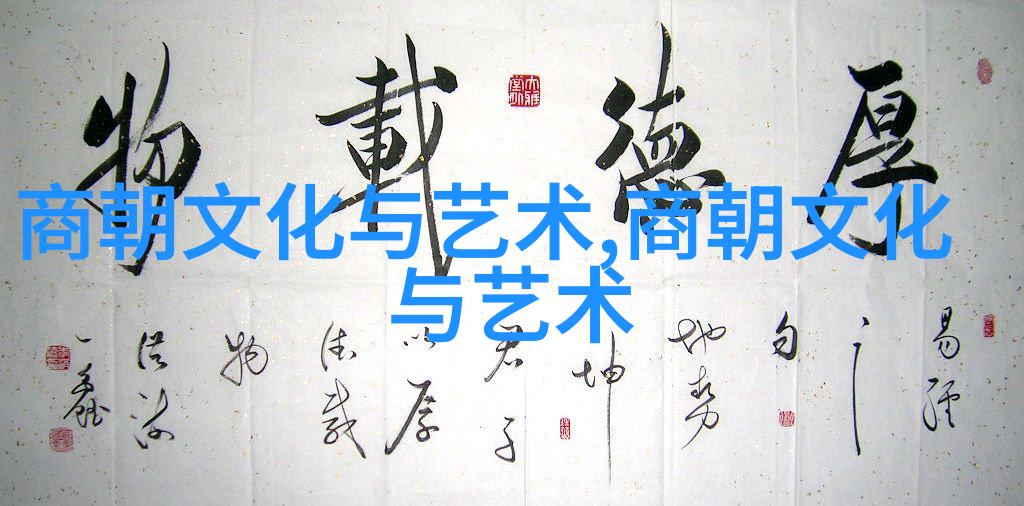 厚德載物
商朝文化与艺术,商朝文化
与艺术
易經
之
句
地势
坤
君子
以厚
德载
物
一鑫